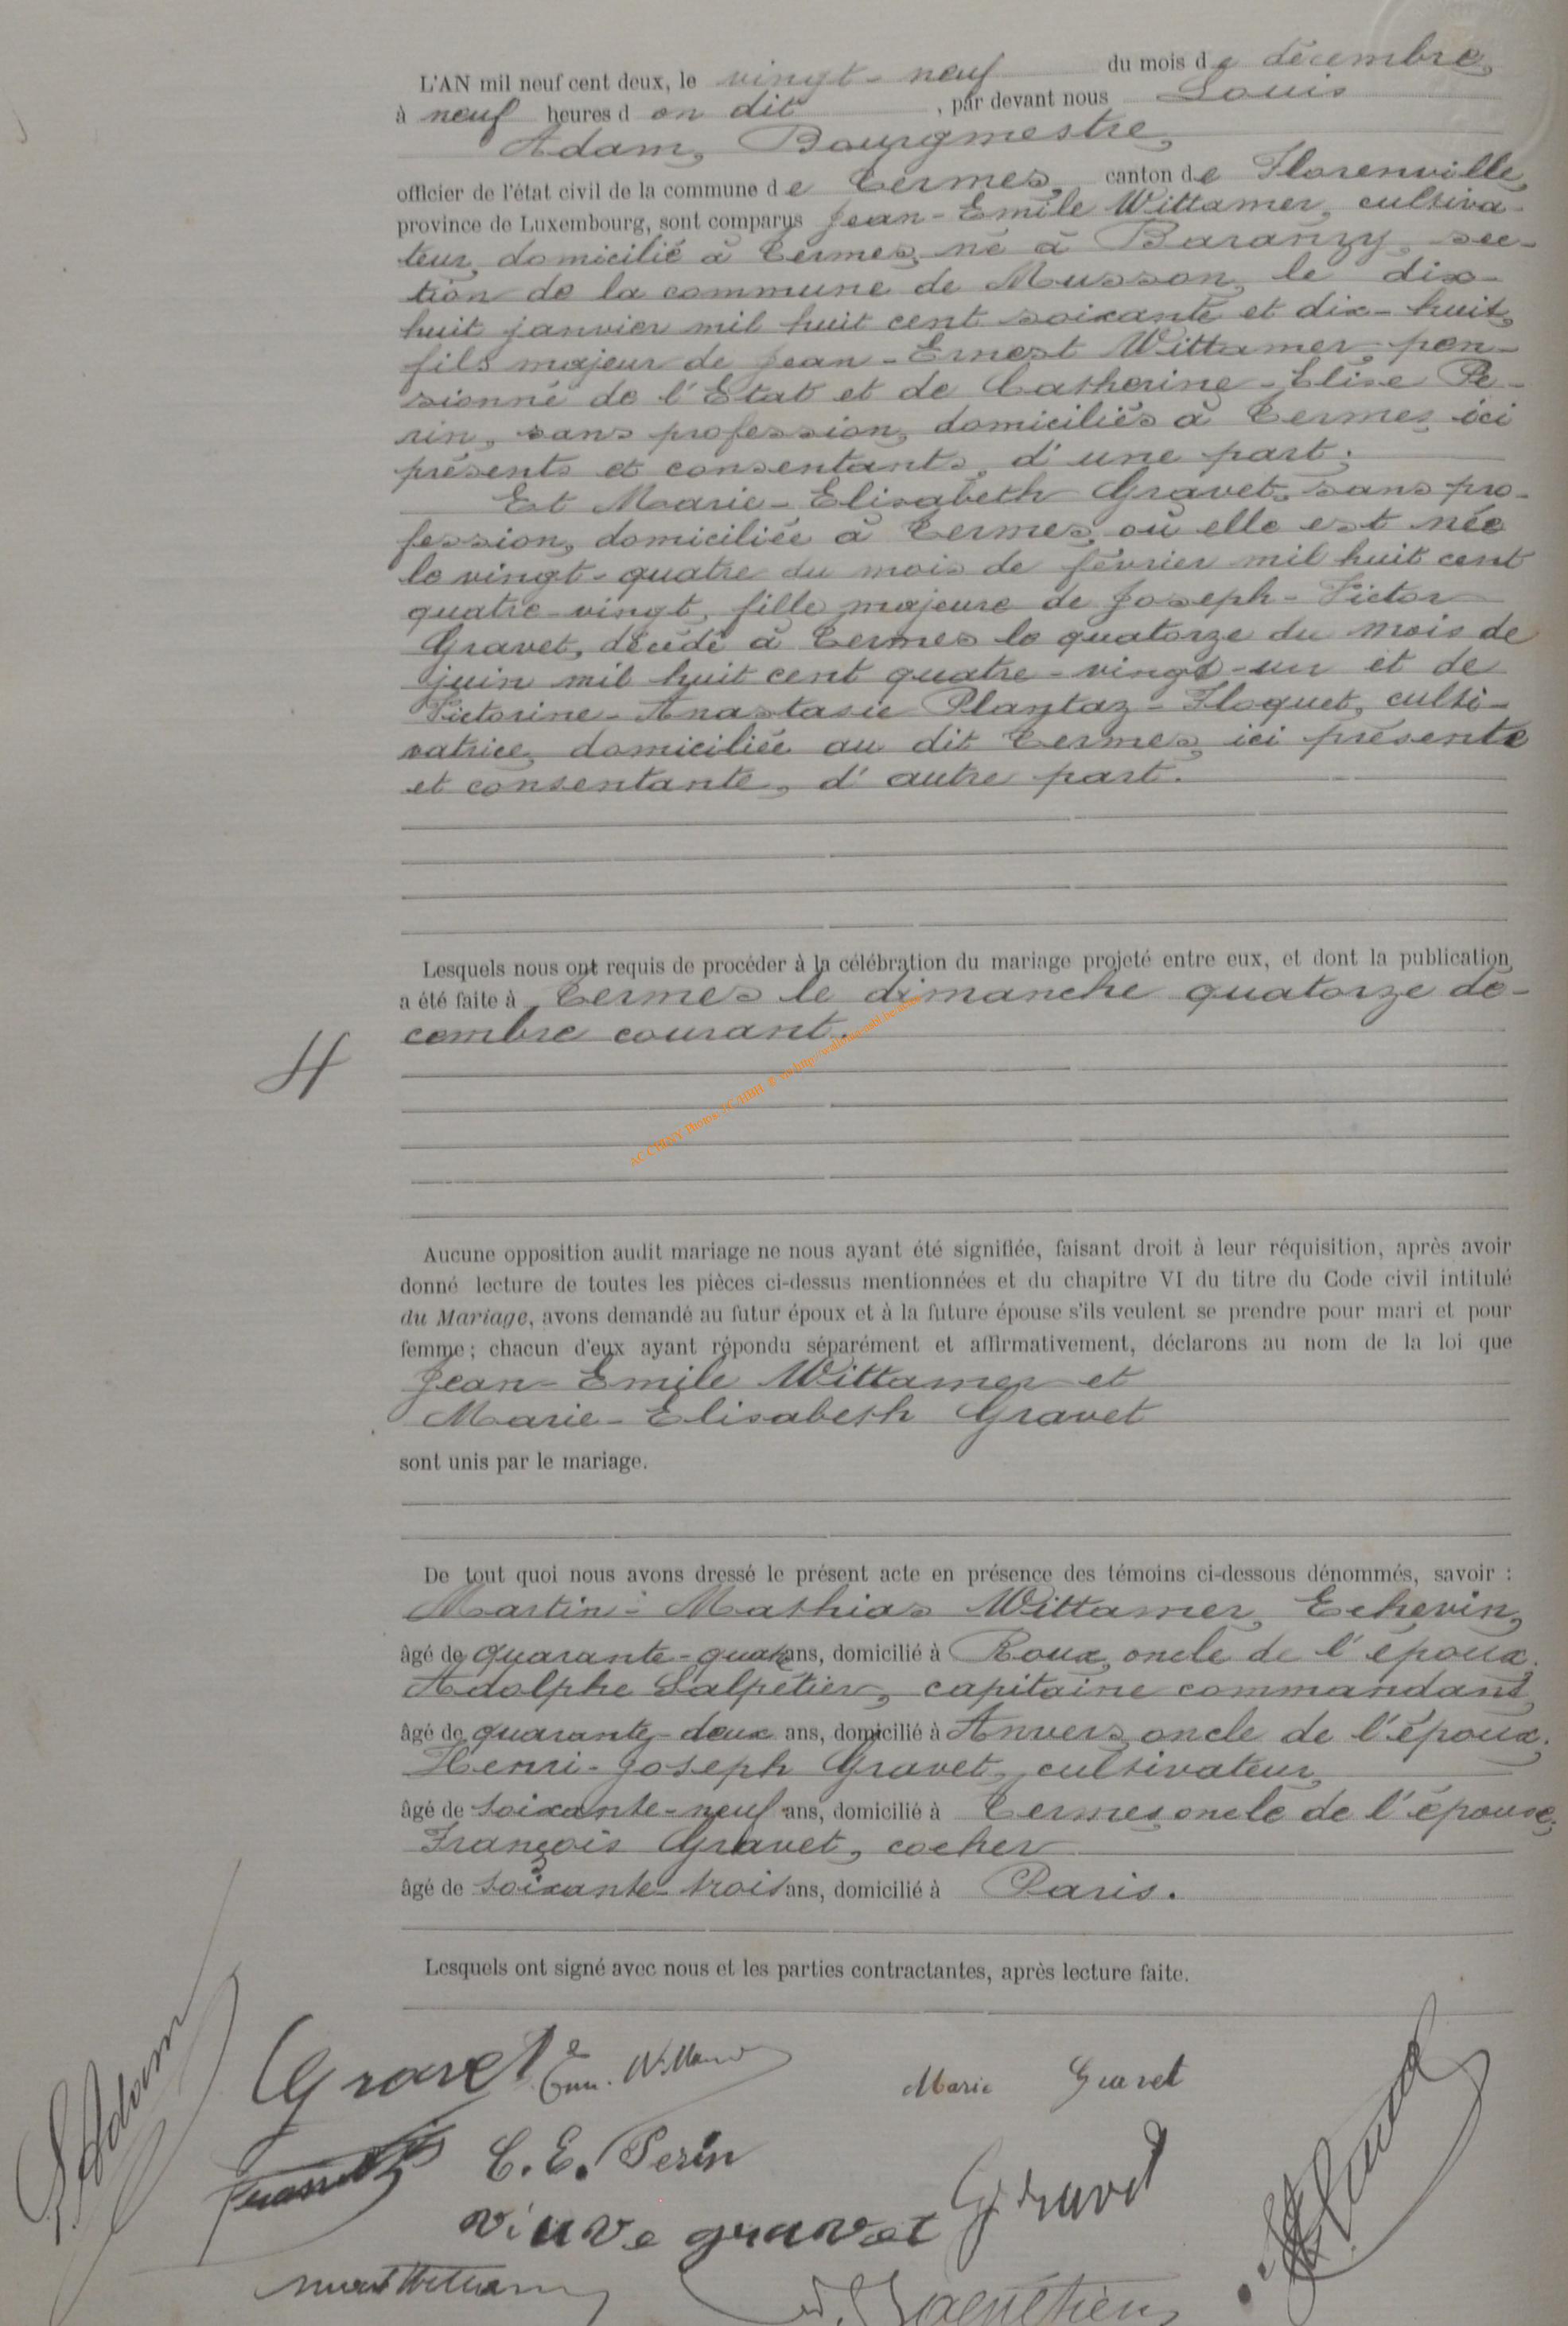 L'AN mil neuf cent deux, le vingt-neuf du mois de décembre,
à neuf heures d on dit, par devant nous Louis
Adam, Bourgmestre,
officier de l'état civil de la commune de Termes, canton de Florenville,
province de Luxembourg, sont comparus Jean-Emile Wittamer, cultiva-
teur, domicilié à Termes, né à Baranzy, sec-
tion de la commune de Musson, le dix-
huit janvier mil huit cent soixante et dix-huit,
fils majeur de Jean-Ernest Wittamer, pen-
sionné de l'Etat et de Catherine-Elise Pe-
rin, sans profession, domiciliés à Termes, ici
présents et consentants, d'une part;
Et Marie-Elisabeth Gravet, sans pro-
fession, domiciliée à Termes, où elle est née
le vingt-quatre du mois de février mil huit cent
quatre-vingt, fille majeure de Joseph-Victor
Gravet, décédé à Termes le quatorze du mois de
juin mil huit cent quatre-vingt-un et de
Victorine-Anastasie Plantaz-Floquet, culti-
vatrice, domiciliée au dit Termes, ici présente
et consentante, d'autre part.
Lesquels nous ont requis de procéder à la célébration du mariage projeté entre eux, et dont la publication
a été faite à Termes le dimanche quatorze dé-
cembre courant.
Aucune opposition audit mariage ne nous ayant été signifiée, faisant droit à leur réquisition, après avoir
donné lecture de toutes les pièces ci-dessus mentionnées et du chapitre VI du titre du Code civil intitulé
du Mariage, avons demandé au futur époux et à la future épouse s'ils veulent se prendre pour mari et pour
femme; chacun d'eux ayant répondu séparément et affirmativement, déclarons au nom de la loi que
Jean-Emile Wittamer et
Marie-Elisabeth Gravet
sont unis par le mariage.
De tout quoi nous avons dressé le présent acte en présence des témoins ci-dessous dénommés, savoir :
Martin-Mathias Wittamer, Echevin,
âgé de quarante-quatre ans, domicilié à Roux, oncle de l'époux.
Adolphe Salpétier, capitaine commandant,
âgé de quarante-deux ans, domicilié à Anvers, oncle de l'époux.
Henri-Joseph Gravet, cultivateur,
âgé de soixante-neuf ans, domicilié à Termes, oncle de l'épouse,
François Gravet, cocher
âgé de soixante-trois ans, domicilié à Paris.
Lesquels ont signé avec nous et les parties contractantes, après lecture faite.
L. Adam
Gravet
Marie Gravet
C. E. Perin
Gravet
Veuve gravet